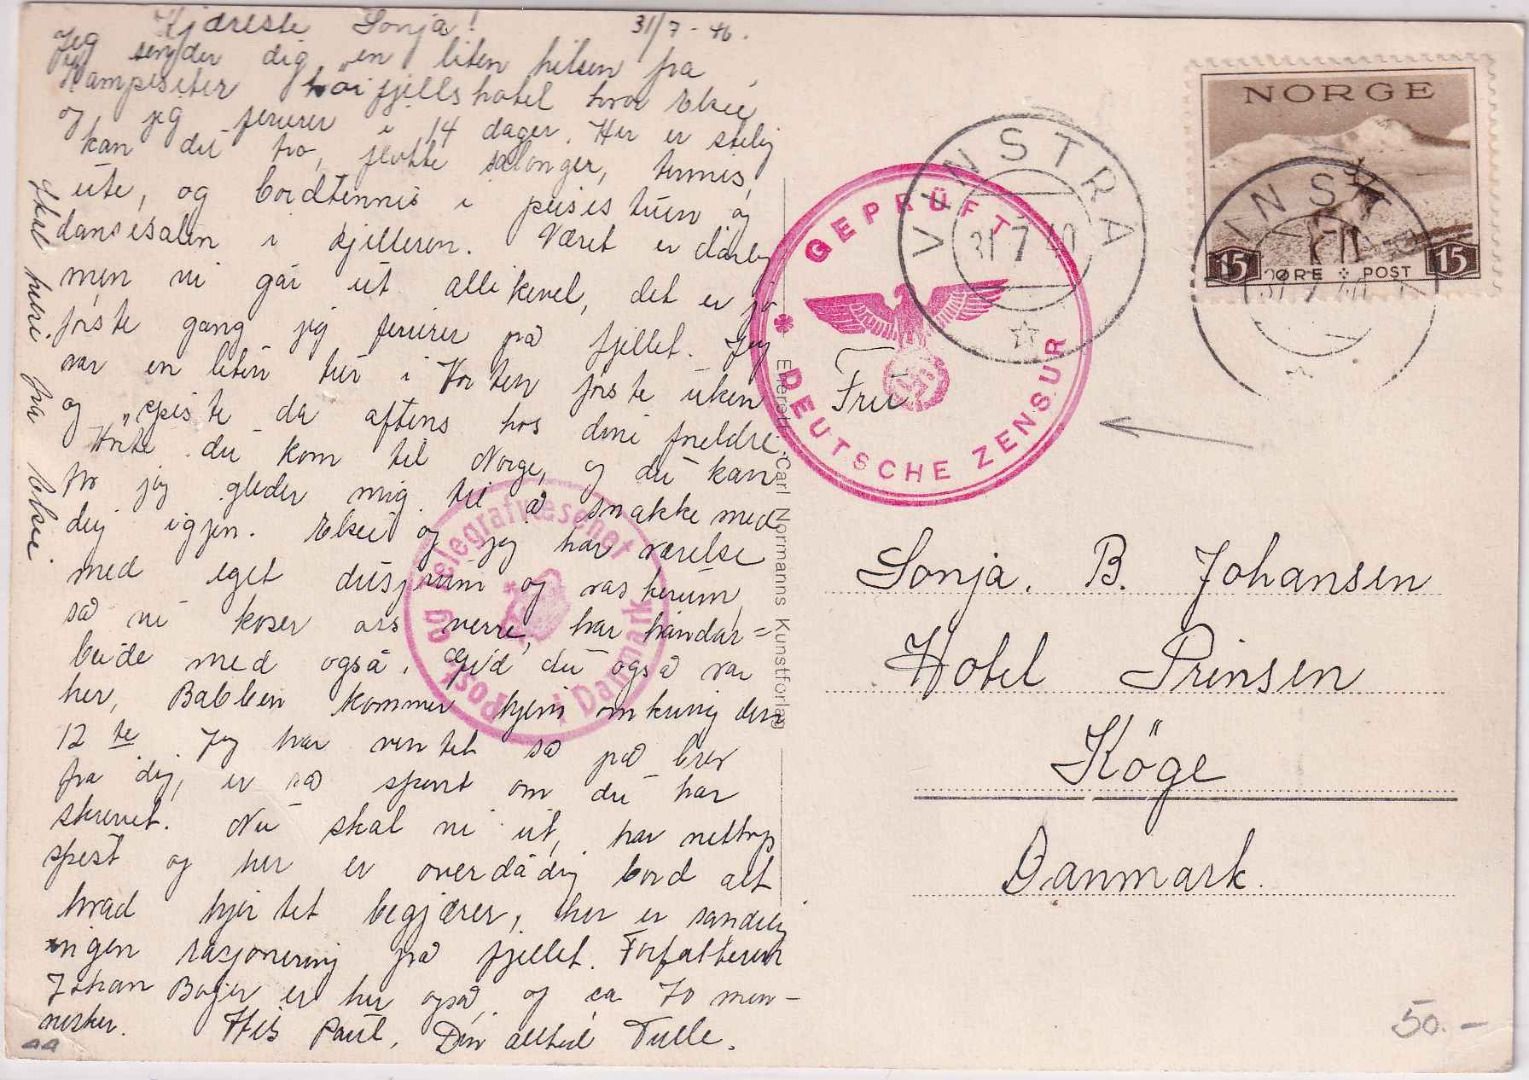 Kjæreste Sonja! 31/7-40.
Jeg sender dig en liten hilsen fra
Kampeseter höifjellshotel hvor Elsie
og jeg ferierer i 14 dager. Her er stilig
kan du tro, flotte salonger, tennis
ute, og bordtennis i peisestuen og
dansesalen i kjelleren. Været er dårlig
men vi går ut allikevel, det er jo
første gang jeg ferierer på fjellet. Jeg
var en liten tur i Horten første uken
og spiste da aftens hos dine foreldre.
Hörte du kom til Norge, og du kan
tro jeg gleder mig til å snakke med
dig igjen. Elsie og jeg har værelse
med eget dusjrum og vaskerum,
så vi koser oss verre, har håndar=
beide med også. Gid du også var
her, Babben kommer hjem omkring den
12te. Jeg har ventet så på brev
fra dig, er så spent om du har
skrevet. Nu skal vi ut, har nettop
spist og her er overdådig bord alt
hvad hjertet begjærer, her er sandelig
ingen rasjonering på fjellet. Forfatteren
Johan Bojer er her også, og ca 70 men-
nesker. Hils Paul. Din alltid Tulle.
Skal hilse fra Elsie
Eneret: Carl Normanns Kunstforlag
Post og Telegrafvæsenet
i Danmark
GEPRÜFT
DEUTSCHE ZENSUR
VINSTRA
31 7 40
NORGE
15 ØRE POST 15
VINSTRA
31 7 40
Fru
Sonja. B. Johansen
Hotel Prinsen
Köge
Danmark.
50.-